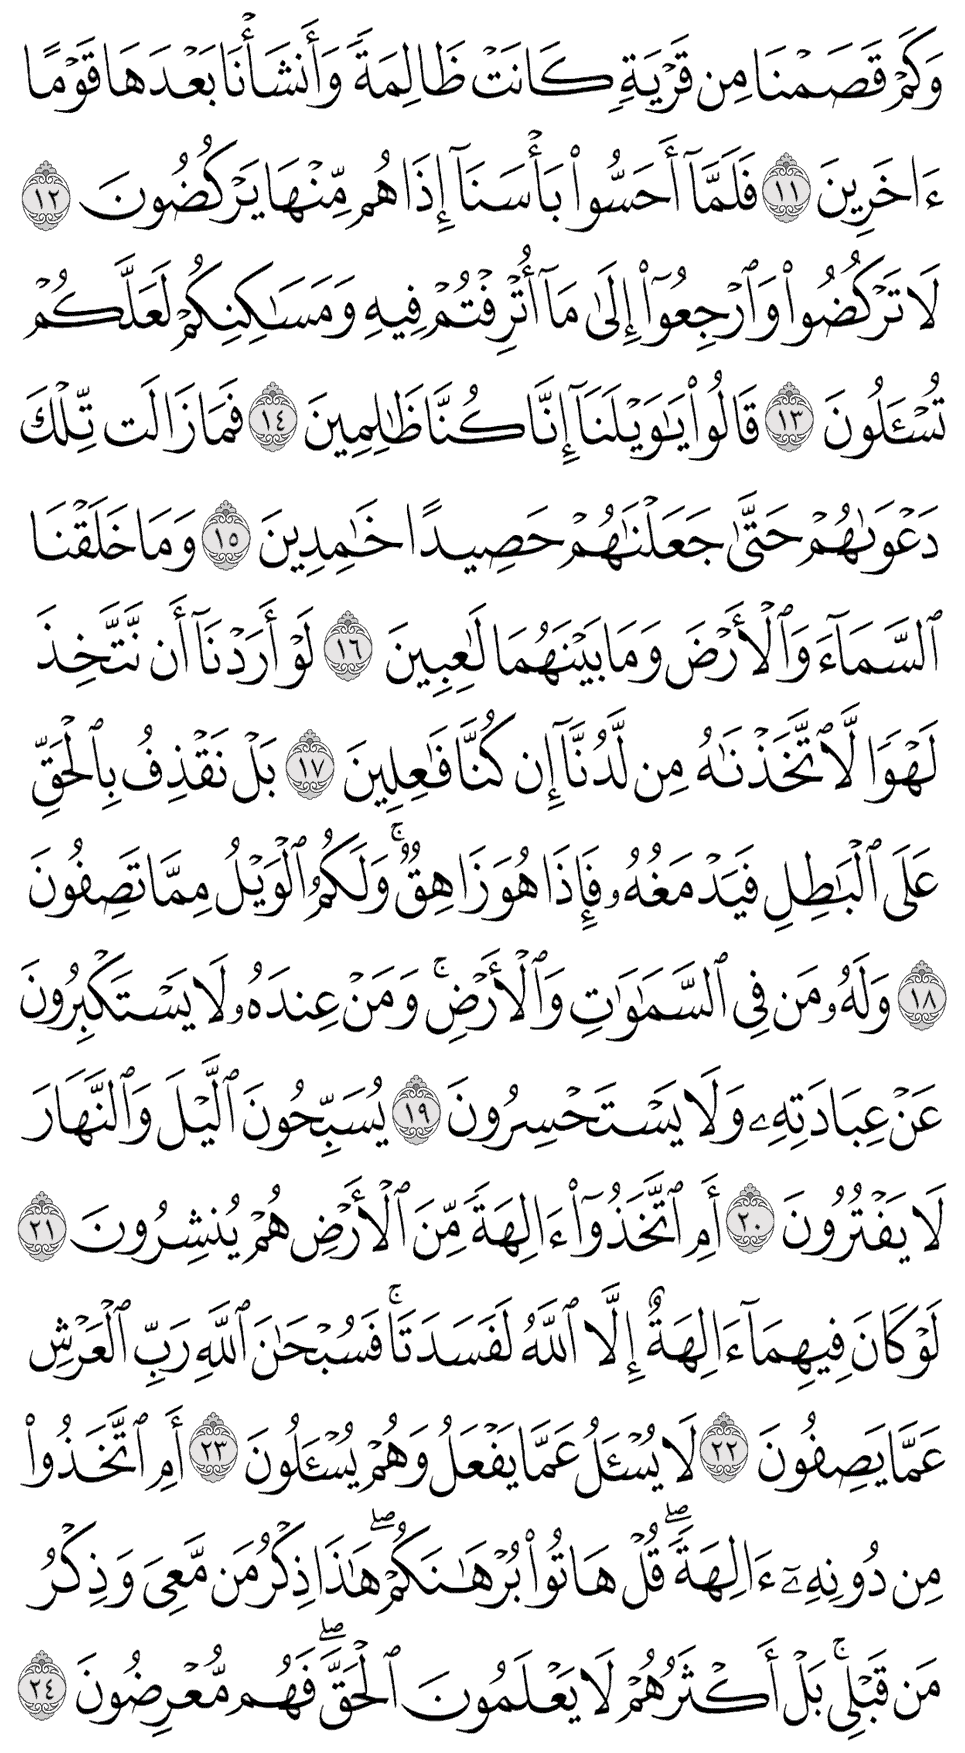 وَكَمۡ قَصَمۡنَا مِن قَرۡيَةٖ كَانَتۡ ظَالِمَةٗ وَأَنشَأۡنَا بَعۡدَهَا قَوۡمًا
ءَاخَرِينَ ١١ فَلَمَّآ أَحَسُّواْ بَأۡسَنَآ إِذَا هُم مِّنۡهَا يَرۡكُضُونَ ١٢
لَا تَرۡكُضُواْ وَٱرۡجِعُوٓاْ إِلَىٰ مَآ أُتۡرِفۡتُمۡ فِيهِ وَمَسَٰكِنِكُمۡ لَعَلَّكُمۡ
تُسۡـَٔلُونَ ١٣ قَالُواْ يَٰوَيۡلَنَآ إِنَّا كُنَّا ظَٰلِمِينَ ١٤ فَمَا زَالَت تِّلۡكَ
دَعۡوَىٰهُمۡ حَتَّىٰ جَعَلۡنَٰهُمۡ حَصِيدًا خَٰمِدِينَ ١٥ وَمَا خَلَقۡنَا
ٱلسَّمَآءَ وَٱلۡأَرۡضَ وَمَا بَيۡنَهُمَا لَٰعِبِينَ ١٦ لَوۡ أَرَدۡنَآ أَن نَّتَّخِذَ
لَهۡوٗا لَّٱتَّخَذۡنَٰهُ مِن لَّدُنَّآ إِن كُنَّا فَٰعِلِينَ ١٧ بَلۡ نَقۡذِفُ بِٱلۡحَقِّ
عَلَى ٱلۡبَٰطِلِ فَيَدۡمَغُهُۥ فَإِذَا هُوَ زَاهِقٞۚ وَلَكُمُ ٱلۡوَيۡلُ مِمَّا تَصِفُونَ
١٨ وَلَهُۥ مَن فِي ٱلسَّمَٰوَٰتِ وَٱلۡأَرۡضِۚ وَمَنۡ عِندَهُۥ لَا يَسۡتَكۡبِرُونَ
عَنۡ عِبَادَتِهِۦ وَلَا يَسۡتَحۡسِرُونَ ١٩ يُسَبِّحُونَ ٱلَّيۡلَ وَٱلنَّهَارَ
لَا يَفۡتُرُونَ ٢٠ أَمِ ٱتَّخَذُوٓاْ ءَالِهَةٗ مِّنَ ٱلۡأَرۡضِ هُمۡ يُنشِرُونَ ٢١
لَوۡ كَانَ فِيهِمَآ ءَالِهَةٌ إِلَّا ٱللَّهُ لَفَسَدَتَاۚ فَسُبۡحَٰنَ ٱللَّهِ رَبِّ ٱلۡعَرۡشِ
عَمَّا يَصِفُونَ ٢٢ لَا يُسۡـَٔلُ عَمَّا يَفۡعَلُ وَهُمۡ يُسۡـَٔلُونَ ٢٣ أَمِ ٱتَّخَذُواْ
مِن دُونِهِۦٓ ءَالِهَةٗۖ قُلۡ هَاتُواْ بُرۡهَٰنَكُمۡۖ هَٰذَا ذِكۡرُ مَن مَّعِيَ وَذِكۡرُ
مَن قَبۡلِيۚ بَلۡ أَكۡثَرُهُمۡ لَا يَعۡلَمُونَ ٱلۡحَقَّۖ فَهُم مُّعۡرِضُونَ ٢٤